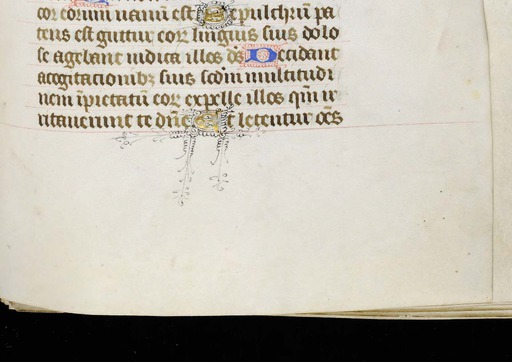 cor eorum uanu̅ est Sepulchru̅ pa
tens est guttur eoꝝ linguis suis dolo
se agebant iudica illos ds̅ Decidant
acogitacionibꝫ suis scdm̅ multitudi
nem i̅pietatu̅ eoꝝ expelle illos qm̅ ir
ritauerunt te dn̅e Et letentur om̅s